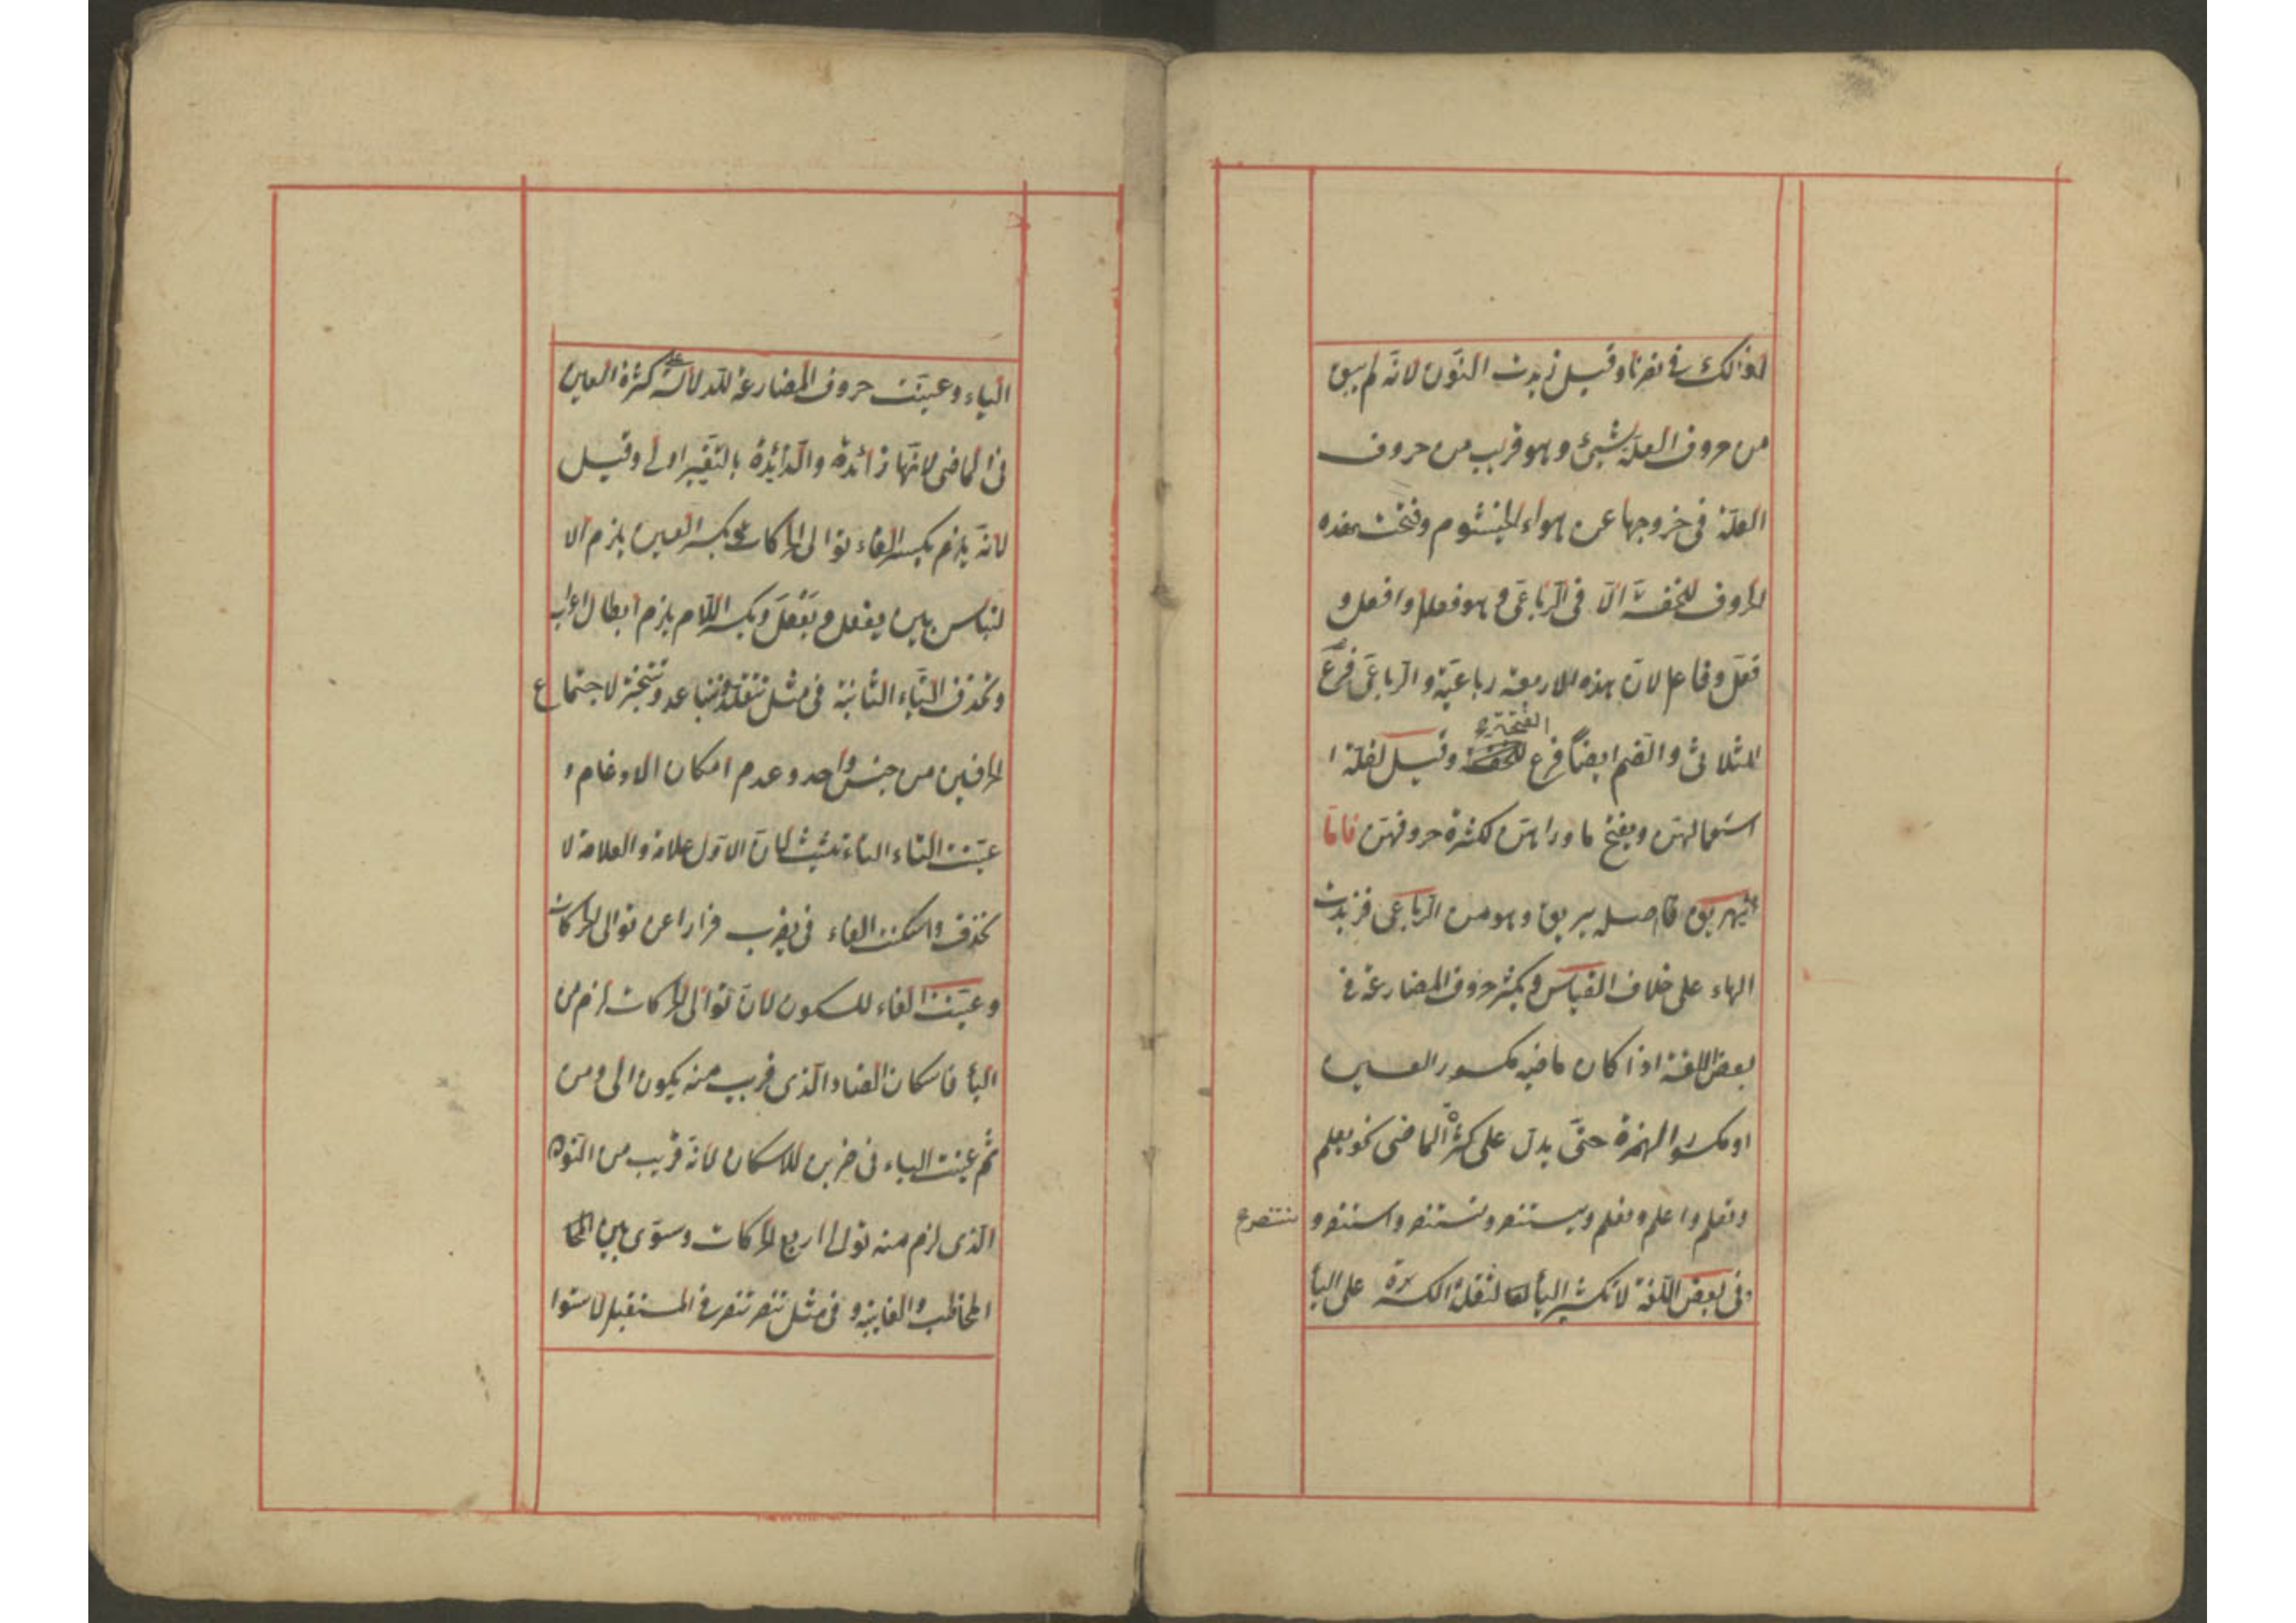 لذالك في نصرنا وقيل زيدت النّون لانّه لم يبق
من حروف العلّة شيئ وهو قريب من حروف
العلّة فى خروجها عن هواء الخيشوم وفتحت هذه
الحروف للخفّة الّا فى الرّباعّى وهو فعلل وافعل و
فعّل وفاعل لانّ هذه الاربعة رباعيّة والرّباعّى فرع
الثلاثى والضّم ايضاً فرع الفتحة وقيل لقلّة ا
استعمالهنّ ويفتح ما وراهنّ لكثرة حروفهنّ فامّا
يهريق فاصله يريق وهو من الرّباعى فزيدت
الهاء على خلاف القياس ويكسر حروف المضارعة فى
بعض اللغة اذا كان ماضيه مكسور العين
او مكسور الهمزة حتّى يدلّ على كسرة الماضى نحو يعلم
وتعلم واعلم ونعلم ويستنصر وتستنصر واستنصر و
نستنصر
وفى بعض اللّغة لا تكسر اليأ لثقلة الكسرة على اليأ
الياء وعيّنت حروف المضارعة للدلالة على كسرة العين
فى الماضى لانّها زائدة والزّائدة بالتّغيير اولى وقيل
لانّه يلزم بكسر الفاء توالى الحركات وبكسر العين يلزم الا
لتباس بين يفعِل ويفعَل وبكسر اللّام يلزم ابطال اعراب
وتحذف التّاء الثانية فى مثل تتقلّد وتتباعد وتتبختر لاجتماع
الحرفين من جنس واحد وعدم امكان الادغام و
عيّنت التّاء الثانية لانّ الاوّل علامة والعلامة لا
تحذف واسكنت الفاء فى يضرب فرارا عن توالى الحركات
وعيّنت الفاء للسكون لانّ توالى الحركات لزم من
اليأ فاسكان الضاد الّذى قريب منه يكون اولى ومن
ثم عيّنت الباء فى ضربن للاسكان لانّه قريب من النّون
الّذى لزم منه توالى اربع الحركات وسوّى بين المخا
المخاطب والغايبة و فى مثل تنصر تنصر فى المستقبل لاستوا